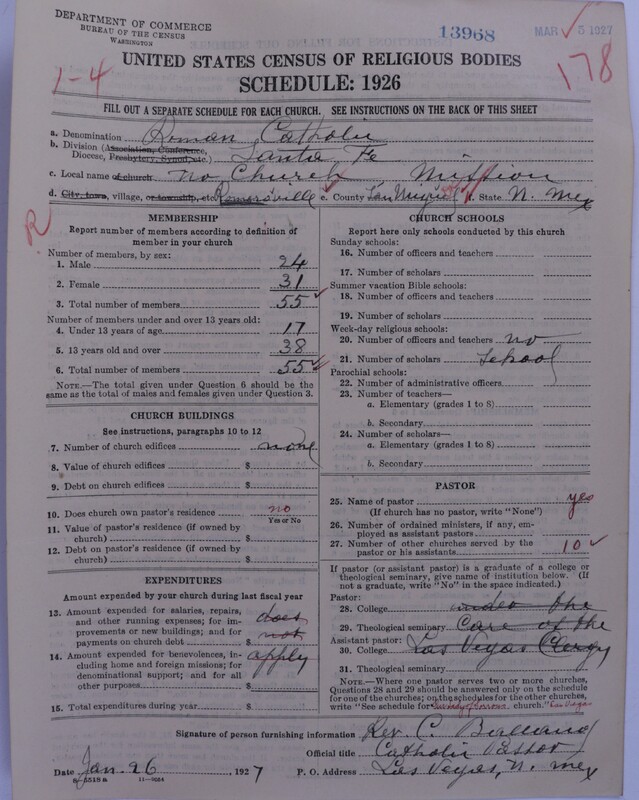 DEPARTMENT OF COMMERCE
BUREAU OF THE CENSUS
WASHINGTON
13968
MAR 5 1927
1-4
178
UNITED STATES CENSUS OF RELIGIOUS BODIES
SCHEDULE: 1926
FILL OUT A SEPARATE SCHEDULE FOR EACH CHURCH. SEE INSTRUCTIONS ON THE BACK OF THIS SHEET
a. Denomination Roman Catholic
b. Division (Association, Conference, Diocese, Presbytery, Synod, etc.) Santa Fe
c. Local name of church no Church Mission
d. City, town, village, or township, etc. Romeroville e. County San Miguel f. State N. Mex
R
MEMBERSHIP
Report number of members according to definition of member in your church
Number of members, by sex:
1. Male 24
2. Female 31
3. Total number of members 55
Number of members under and over 13 years old:
4. Under 13 years of age 17
5. 13 years old and over 38
6. Total number of members 55
NOTE.—The total given under Question 6 should be the same as the total of males and females given under Question 3.
CHURCH BUILDINGS
See instructions, paragraphs 10 to 12
7. Number of church edifices none
8. Value of church edifices $
9. Debt on church edifices $
10. Does church own pastor's residence no
Yes or No
11. Value of pastor's residence (if owned by church) $
12. Debt on pastor's residence (if owned by church) $
EXPENDITURES
Amount expended by your church during last fiscal year
13. Amount expended for salaries, repairs, and other running expenses; for improvements or new buildings; and for payments on church debt $ does not
14. Amount expended for benevolences, including home and foreign missions; for denominational support; and for all other purposes $ apply
15. Total expenditures during year $
CHURCH SCHOOLS
Report here only schools conducted by this church
Sunday schools:
16. Number of officers and teachers
17. Number of scholars
Summer vacation Bible schools:
18. Number of officers and teachers
19. Number of scholars
Week-day religious schools:
20. Number of officers and teachers no
21. Number of scholars School
Parochial schools:
22. Number of administrative officers
23. Number of teachers—
a. Elementary (grades 1 to 8)
b. Secondary
24. Number of scholars—
a. Elementary (grades 1 to 8)
b. Secondary
PASTOR
25. Name of pastor yes
(If church has no pastor, write "None")
26. Number of ordained ministers, if any, employed as assistant pastors
27. Number of other churches served by the pastor or his assistants 10
If pastor (or assistant pastor) is a graduate of a college or theological seminary, give name of institution below. (If not a graduate, write "No" in the space indicated.)
Pastor:
28. College under the
29. Theological seminary Care of the
Assistant pastor:
30. College Las Vegas Clergy
31. Theological seminary
NOTE.—Where one pastor serves two or more churches, Questions 28 and 29 should be answered only on the schedule for one of the churches; on the schedules for the other churches, write "See schedule for Our Lady of Sorrows church." Las Vegas
Signature of person furnishing information Rev. C. Balland
Official title Catholic Pastor
Date Jan. 26, 1927 P. O. Address Las Vegas, N. Mex